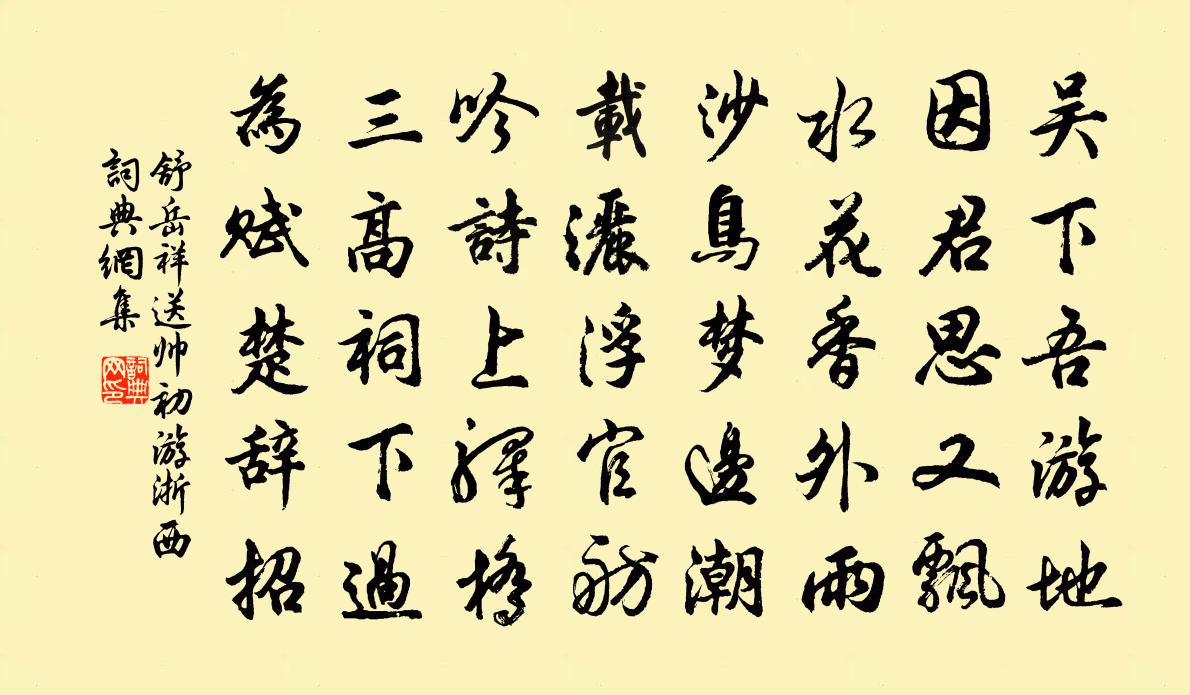 吴下吾游地
因君思又飄
水花香外雨
沙鳥梦邊潮
載灑浮官舫
吟詩上驛橋
三高祠下過
為赋楚辞招
舒岳祥送帅初游浙西
詞典網集
詞典网印